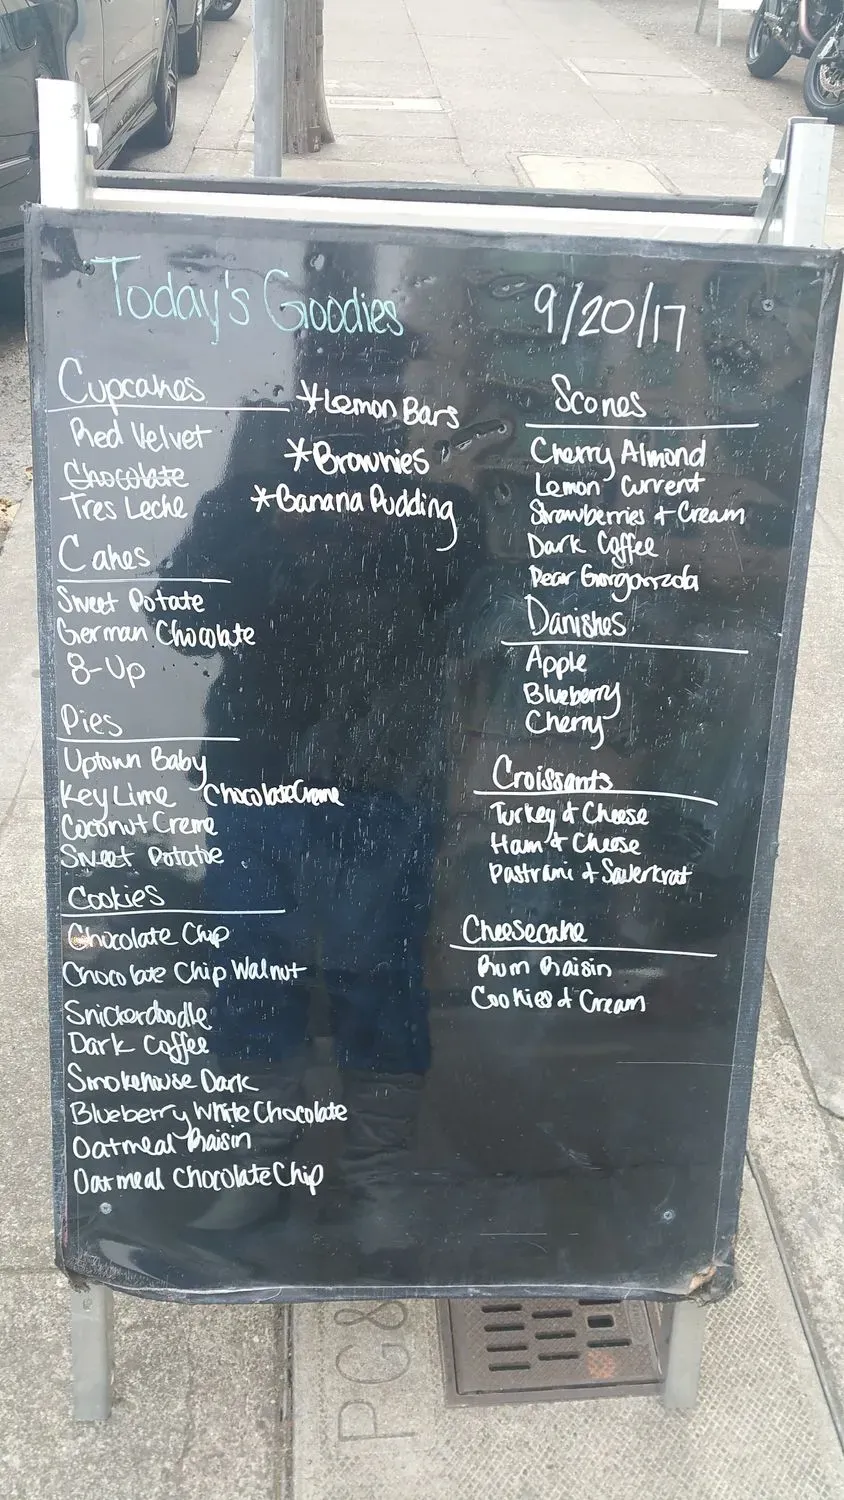 Today's Goodies 9/20/17
Cupcakes
Red Velvet
Chocolate
Tres Leche
*Lemon Bars
*Brownies
*Banana Pudding
Cakes
Sweet Potate
German Chocolate
8-Up
Pies
Uptown Baby
Key Lime Chocolate Creme
Coconut Creme
Sweet Potatoe
Cookies
Chocolate Chip
Chocolate Chip Walnut
Snickerdoodle
Dark Coffee
Smokehouse Dark
Blueberry White Chocolate
Oatmeal Raisin
Oatmeal Chocolate Chip
Scones
Cherry Almond
Lemon Current
Strawberries & Cream
Dark Coffee
Pear Gorgonzola
Danishes
Apple
Blueberry
Cherry
Croissants
Turkey & Cheese
Ham & Cheese
Pastrami & Sauerkrat
Cheesecake
Rum Raisin
Cookies & Cream
PG&